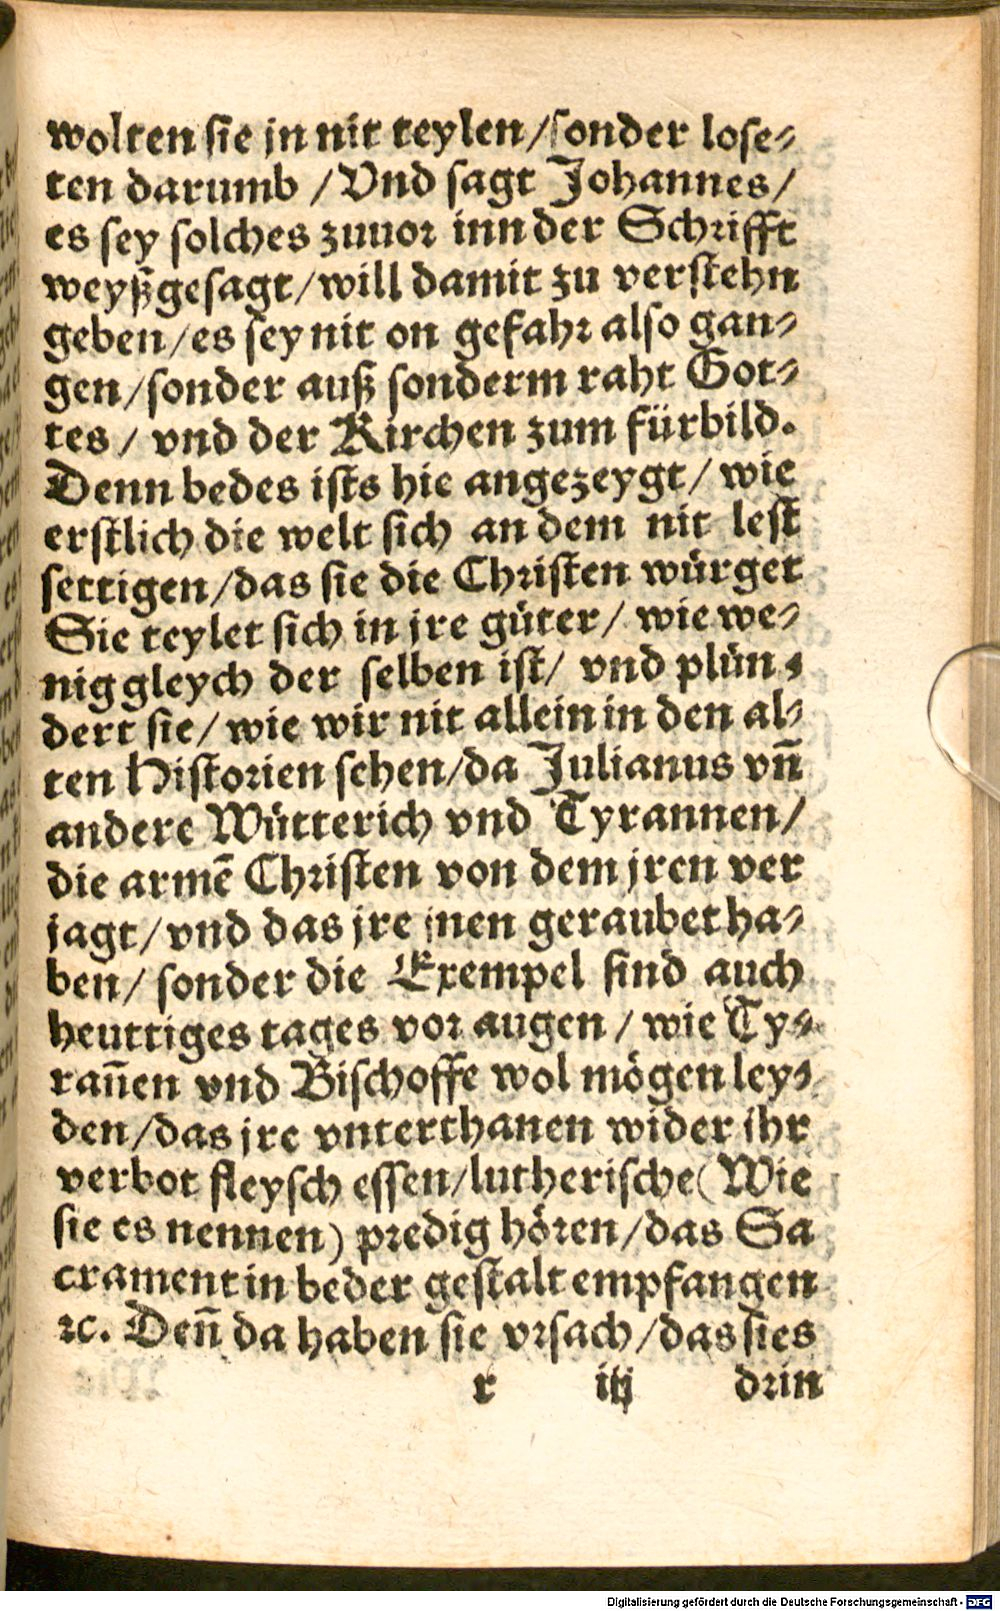 wolten sie jn nit teylen/sonder lose⸗
ten darumb /Vnd sagt Johannes/
es sey solches zuuor inn der Schrifft
weyßgesagt/will damit zu verstehn
geben/es sey nit on gefahr also gan⸗
gen/sonder auß sonderm raht Got⸗
tes/ vnd der Kirchen zum fürbild.
Denn bedes ists hie angezeygt/ wie
erstlich die welt sich an dem nit lest
settigen/das sie die Christen würget
Sie teylet sich in jre güter/ wie we⸗
nig gleych der selben ist/ vnd plün⸗
dert sie/ wie wir nit allein in den al⸗
ten Historien sehen/da Julianus vñ
andere Wütterich vnd Tyrannen/
die armē Christen von dem jren ver
jagt/vnd das jre jnen geraubet ha⸗
ben/ sonder die Exempel sind auch
heuttiges tages vor augen/ wie Ty⸗
rañen vnd Bischoffe wol mögen ley⸗
den/das jre vnterthanen wider jhr
verbot fleysch essen/lutherische(Wie
sie es nennen) predig hören/das Sa
crament in beder gestalt empfangen
ꝛc. Deñ da haben sie vrsach/das sies
r iij drin
Digitalisierung gefördert durch die Deutsche Forschungsgemeinschaft - DFG